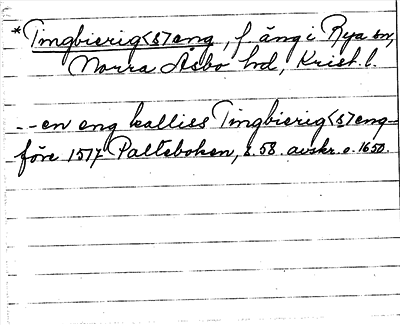 *Tingbierig<s>eng, f. äng i Rya sn,
Norra Åsbo hd, Krist. l.
--en eng kalliss Tingbierig<s>eng-
före 1517 Palteboken, s. 58. avskr. o. 1650.